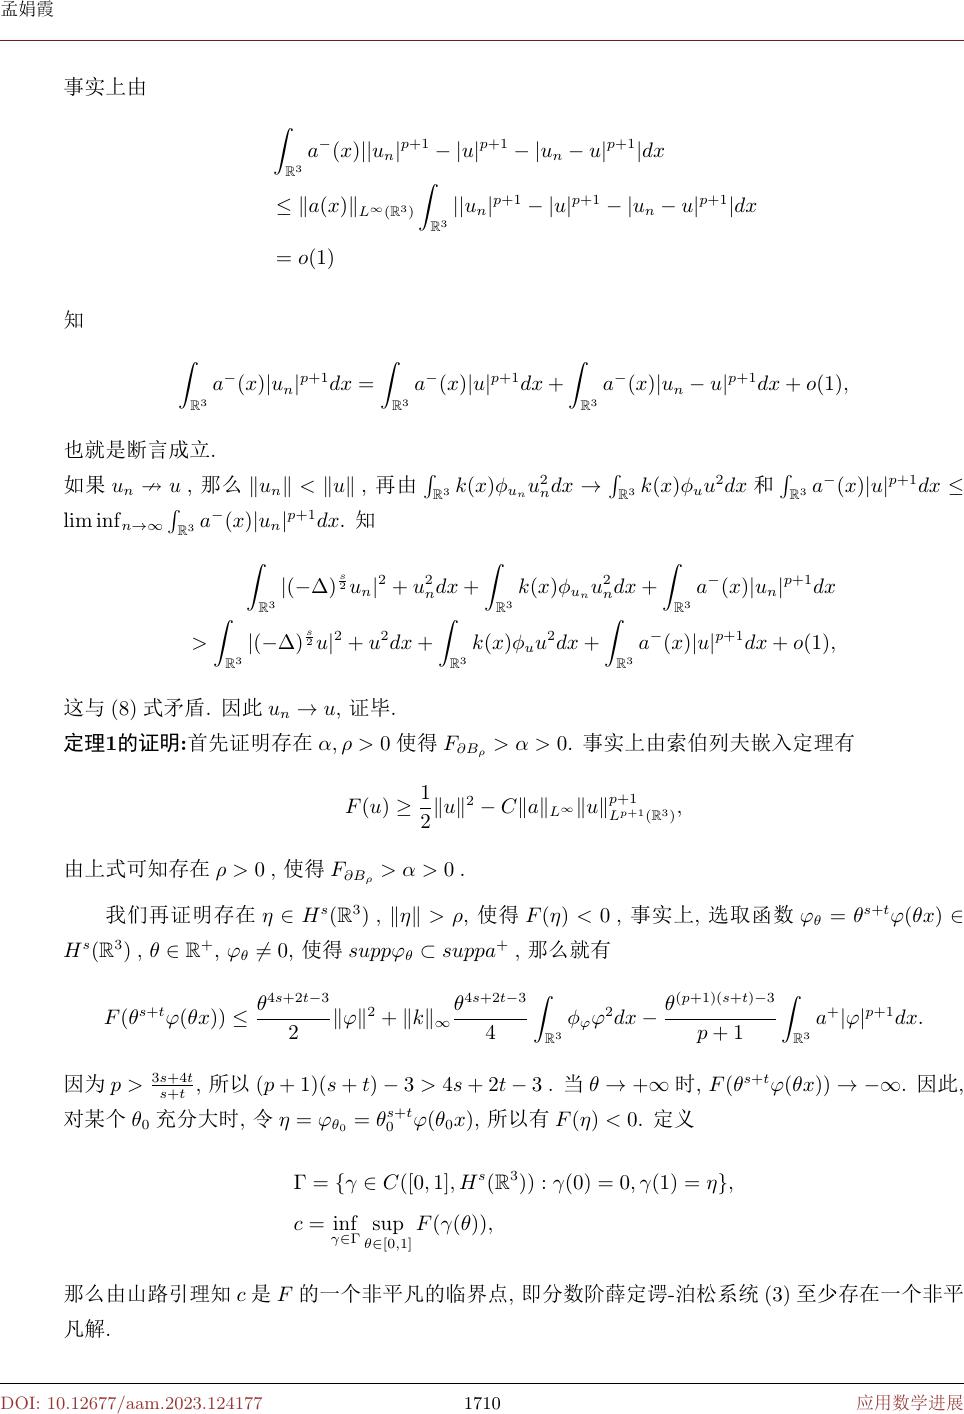 孟娟霞
事实上由
∫_{ℝ³} a⁻(x)||u_n|^{p+1} − |u|^{p+1} − |u_n − u|^{p+1}|dx
≤ ‖a(x)‖_{L^∞(ℝ³)} ∫_{ℝ³} ||u_n|^{p+1} − |u|^{p+1} − |u_n − u|^{p+1}|dx
= o(1)
知
∫_{ℝ³} a⁻(x)|u_n|^{p+1}dx = ∫_{ℝ³} a⁻(x)|u|^{p+1}dx + ∫_{ℝ³} a⁻(x)|u_n − u|^{p+1}dx + o(1),
也就是断言成立.
如果 u_n ↛ u , 那么 ‖u_n‖ < ‖u‖ , 再由 ∫_{ℝ³} k(x)ϕ_{u_n}u_n²dx → ∫_{ℝ³} k(x)ϕ_u u²dx 和 ∫_{ℝ³} a⁻(x)|u|^{p+1}dx ≤
lim inf_{n→∞} ∫_{ℝ³} a⁻(x)|u_n|^{p+1}dx. 知
∫_{ℝ³} |(−Δ)^{s/2}u_n|² + u_n²dx + ∫_{ℝ³} k(x)ϕ_{u_n}u_n²dx + ∫_{ℝ³} a⁻(x)|u_n|^{p+1}dx
> ∫_{ℝ³} |(−Δ)^{s/2}u|² + u²dx + ∫_{ℝ³} k(x)ϕ_u u²dx + ∫_{ℝ³} a⁻(x)|u|^{p+1}dx + o(1),
这与 (8) 式矛盾. 因此 u_n → u, 证毕.
定理1的证明:首先证明存在 α, ρ > 0 使得 F_{∂B_ρ} > α > 0. 事实上由索伯列夫嵌入定理有
F(u) ≥ \frac{1}{2}‖u‖² − C‖a‖_{L^∞}‖u‖^{p+1}_{L^{p+1}(ℝ³)},
由上式可知存在 ρ > 0 , 使得 F_{∂B_ρ} > α > 0 .
我们再证明存在 η ∈ H^s(ℝ³) , ‖η‖ > ρ, 使得 F(η) < 0 , 事实上, 选取函数 φ_θ = θ^{s+t}φ(θx) ∈
H^s(ℝ³) , θ ∈ ℝ⁺, φ_θ ≠ 0, 使得 suppφ_θ ⊂ suppa⁺ , 那么就有
F(θ^{s+t}φ(θx)) ≤ \frac{θ^{4s+2t−3}}{2}‖φ‖² + ‖k‖_∞ \frac{θ^{4s+2t−3}}{4} ∫_{ℝ³} ϕ_φ φ²dx − \frac{θ^{(p+1)(s+t)−3}}{p + 1} ∫_{ℝ³} a⁺|φ|^{p+1}dx.
因为 p > \frac{3s+4t}{s+t}, 所以 (p + 1)(s + t) − 3 > 4s + 2t − 3 . 当 θ → +∞ 时, F(θ^{s+t}φ(θx)) → −∞. 因此,
对某个 θ₀ 充分大时, 令 η = φ_{θ₀} = θ₀^{s+t}φ(θ₀x), 所以有 F(η) < 0. 定义
Γ = {γ ∈ C([0, 1], H^s(ℝ³)) : γ(0) = 0, γ(1) = η},
c = inf_{γ∈Γ} sup_{θ∈[0,1]} F(γ(θ)),
那么由山路引理知 c 是 F 的一个非平凡的临界点, 即分数阶薛定谔-泊松系统 (3) 至少存在一个非平
凡解.
DOI: 10.12677/aam.2023.124177
1710
应用数学进展